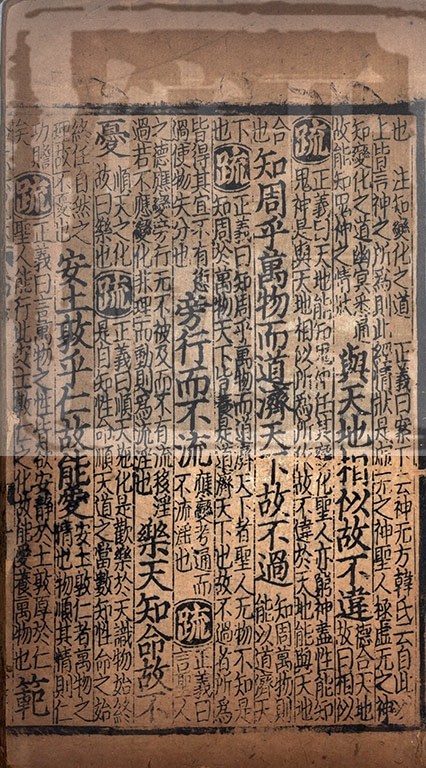 也　注知變化之道　正義曰案下云神无方韓氏云自此以
上皆言神之所為則此經情狀是虛无之神聖人極虛无之神
知變化之道幽冥悉通
故能知鬼神之情狀
與天地相似故不違
德合天地
故曰相似
疏
正義曰天地能知鬼神任其變化聖人亦窮神盡性能知
鬼神是與天地相似所為所作故不違於天地能與天地
合
也
知周乎萬物而道濟天下故不過
知周萬物則
能以道濟天
下
也
疏
正義曰知周乎萬物而道濟天下者聖人无物不知是
知周於萬物天下皆養是道濟天下也故不過者所為
皆得其宜不有愆
過使物失分也
旁行而不流
應變旁通而
不流淫也
疏
正義曰
言聖人
之德應變旁行无不被及而不有流移淫
過若不應變化非理而動則為流淫也
樂天知命故不
憂
順天之化
故曰樂也
疏
正義曰順天施化是歡樂於天識物始終
是自知性命順天道之常數知性命之始
終任自然之
理故不憂也
安土敦乎仁故能愛
安土敦仁者萬物之
情也物順其情則仁
功贍
矣
疏
正義曰言萬物之性皆欲安靜於土敦厚於仁
聖人能行此安土敦仁之化故能愛養萬物也
範